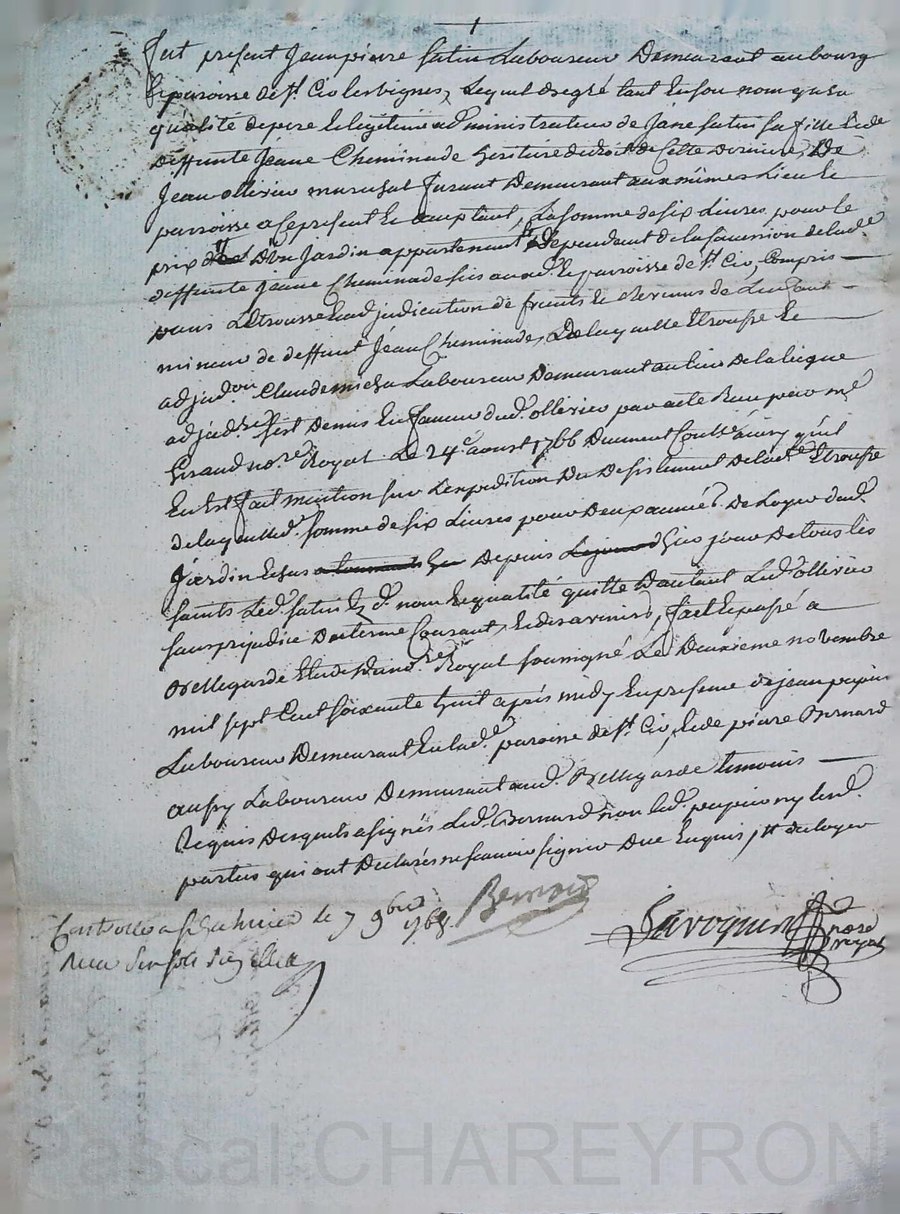 fut present Jean pierre fatin Laboureur Demeurant au bourg
& paroisse de st. Cio les vignes, Lequel de gré tant en son nom qu'en
qualité de pere & legitime administrateur de Jane fatin sa fille & de
deffunte Jeane Cheminade heritiere de droit de Cette derniere, De
Jean ollivier marechal ferant Demeurant aux mêmes Lieu &
paroisse a Ce present & acceptant, La somme de six Livres pour le
prix D'un Jardin appartenant Dependant de la sucession de lade
deffunte Jeane Cheminade sis aud. & paroisse de st. Cio, Compris
dans L'etrousse & adjudication de fruits & revenus de L'enfant
mineur de deffunt Jean Cheminade, De laquelle Etrousse &
adjudon Claude Laboureur Demeurant au lieu De la
adjudre s'est Demis En faveur dud. ollivier par acte Reçu par me
Giraud nore Royal Le 24e. aoust 1766 Dument Conllé ainsy qu'il
En Est fait mention sur L'expedition Du Desistement de lade Etrousse
de laquelle somme de six Livres pour Deux années De Loyer dud.
Jardin Echus Depuis Le jour De tous les
saints Led. fatin Ez d. nom & qualité quitte D'autant Led. ollivier
sans prejudice du terme Courant, & des avenirs, fait & passé a
Bellegarde Etude Du nore Royal soussigné Le Deuxieme novembre
mil sept Cent soixante huit après midy En presence de jean papin
Laboureur Demeurant En lade. paroisse de st. Cio, & de pierre Bernard
aussy Laboureur Demeurant aud. Bellegarde temoins
Requis Desquels a signés Led. Bernard non led. papin ny les d.
parties qui ont Declarés ne savoir signer De ce Enquis
Controllé a le 7 9bre 1768
Reçu
Bernard
Savoquin nore royal
Pascal CHAREYRON